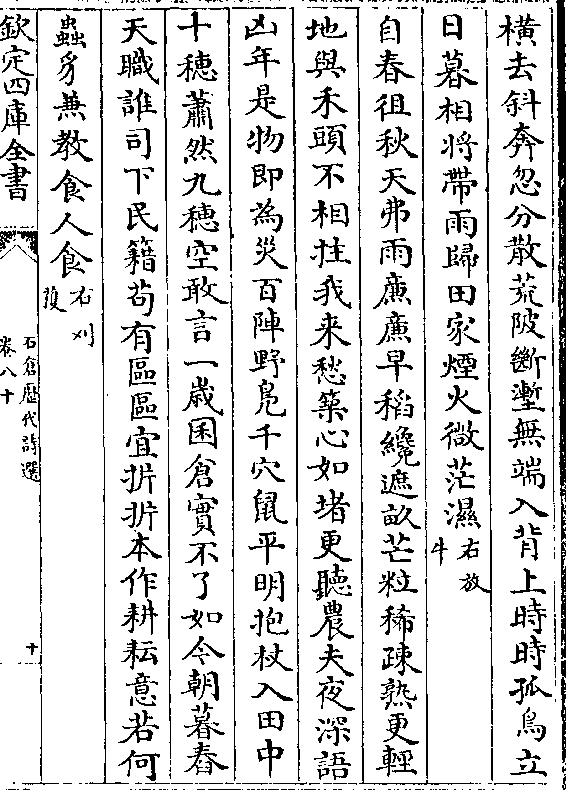 橫去斜奔忽分散荒陂斷塹無端入背上時時孤鳥立
日暮相將帶雨歸田家煙火微茫濕右放牛
自春徂秋天弗雨廉廉早稻纔遮畝芒粒稀疎熟更輕
地與禾頭不相拄我来愁築心如堵更聽農夫夜深語
凶年是物即為災百陣野鳬千穴鼠平明抱杖入田中
十穗蕭然九穗空敢言一歲囷倉實不了如今朝暮舂
天職誰司下民籍苟有區區宜㭊㭊本作耕耘意若何
蟲豸無教食人食右刈穫
欽定四庫全書
石倉歷代詩選
卷八十
十